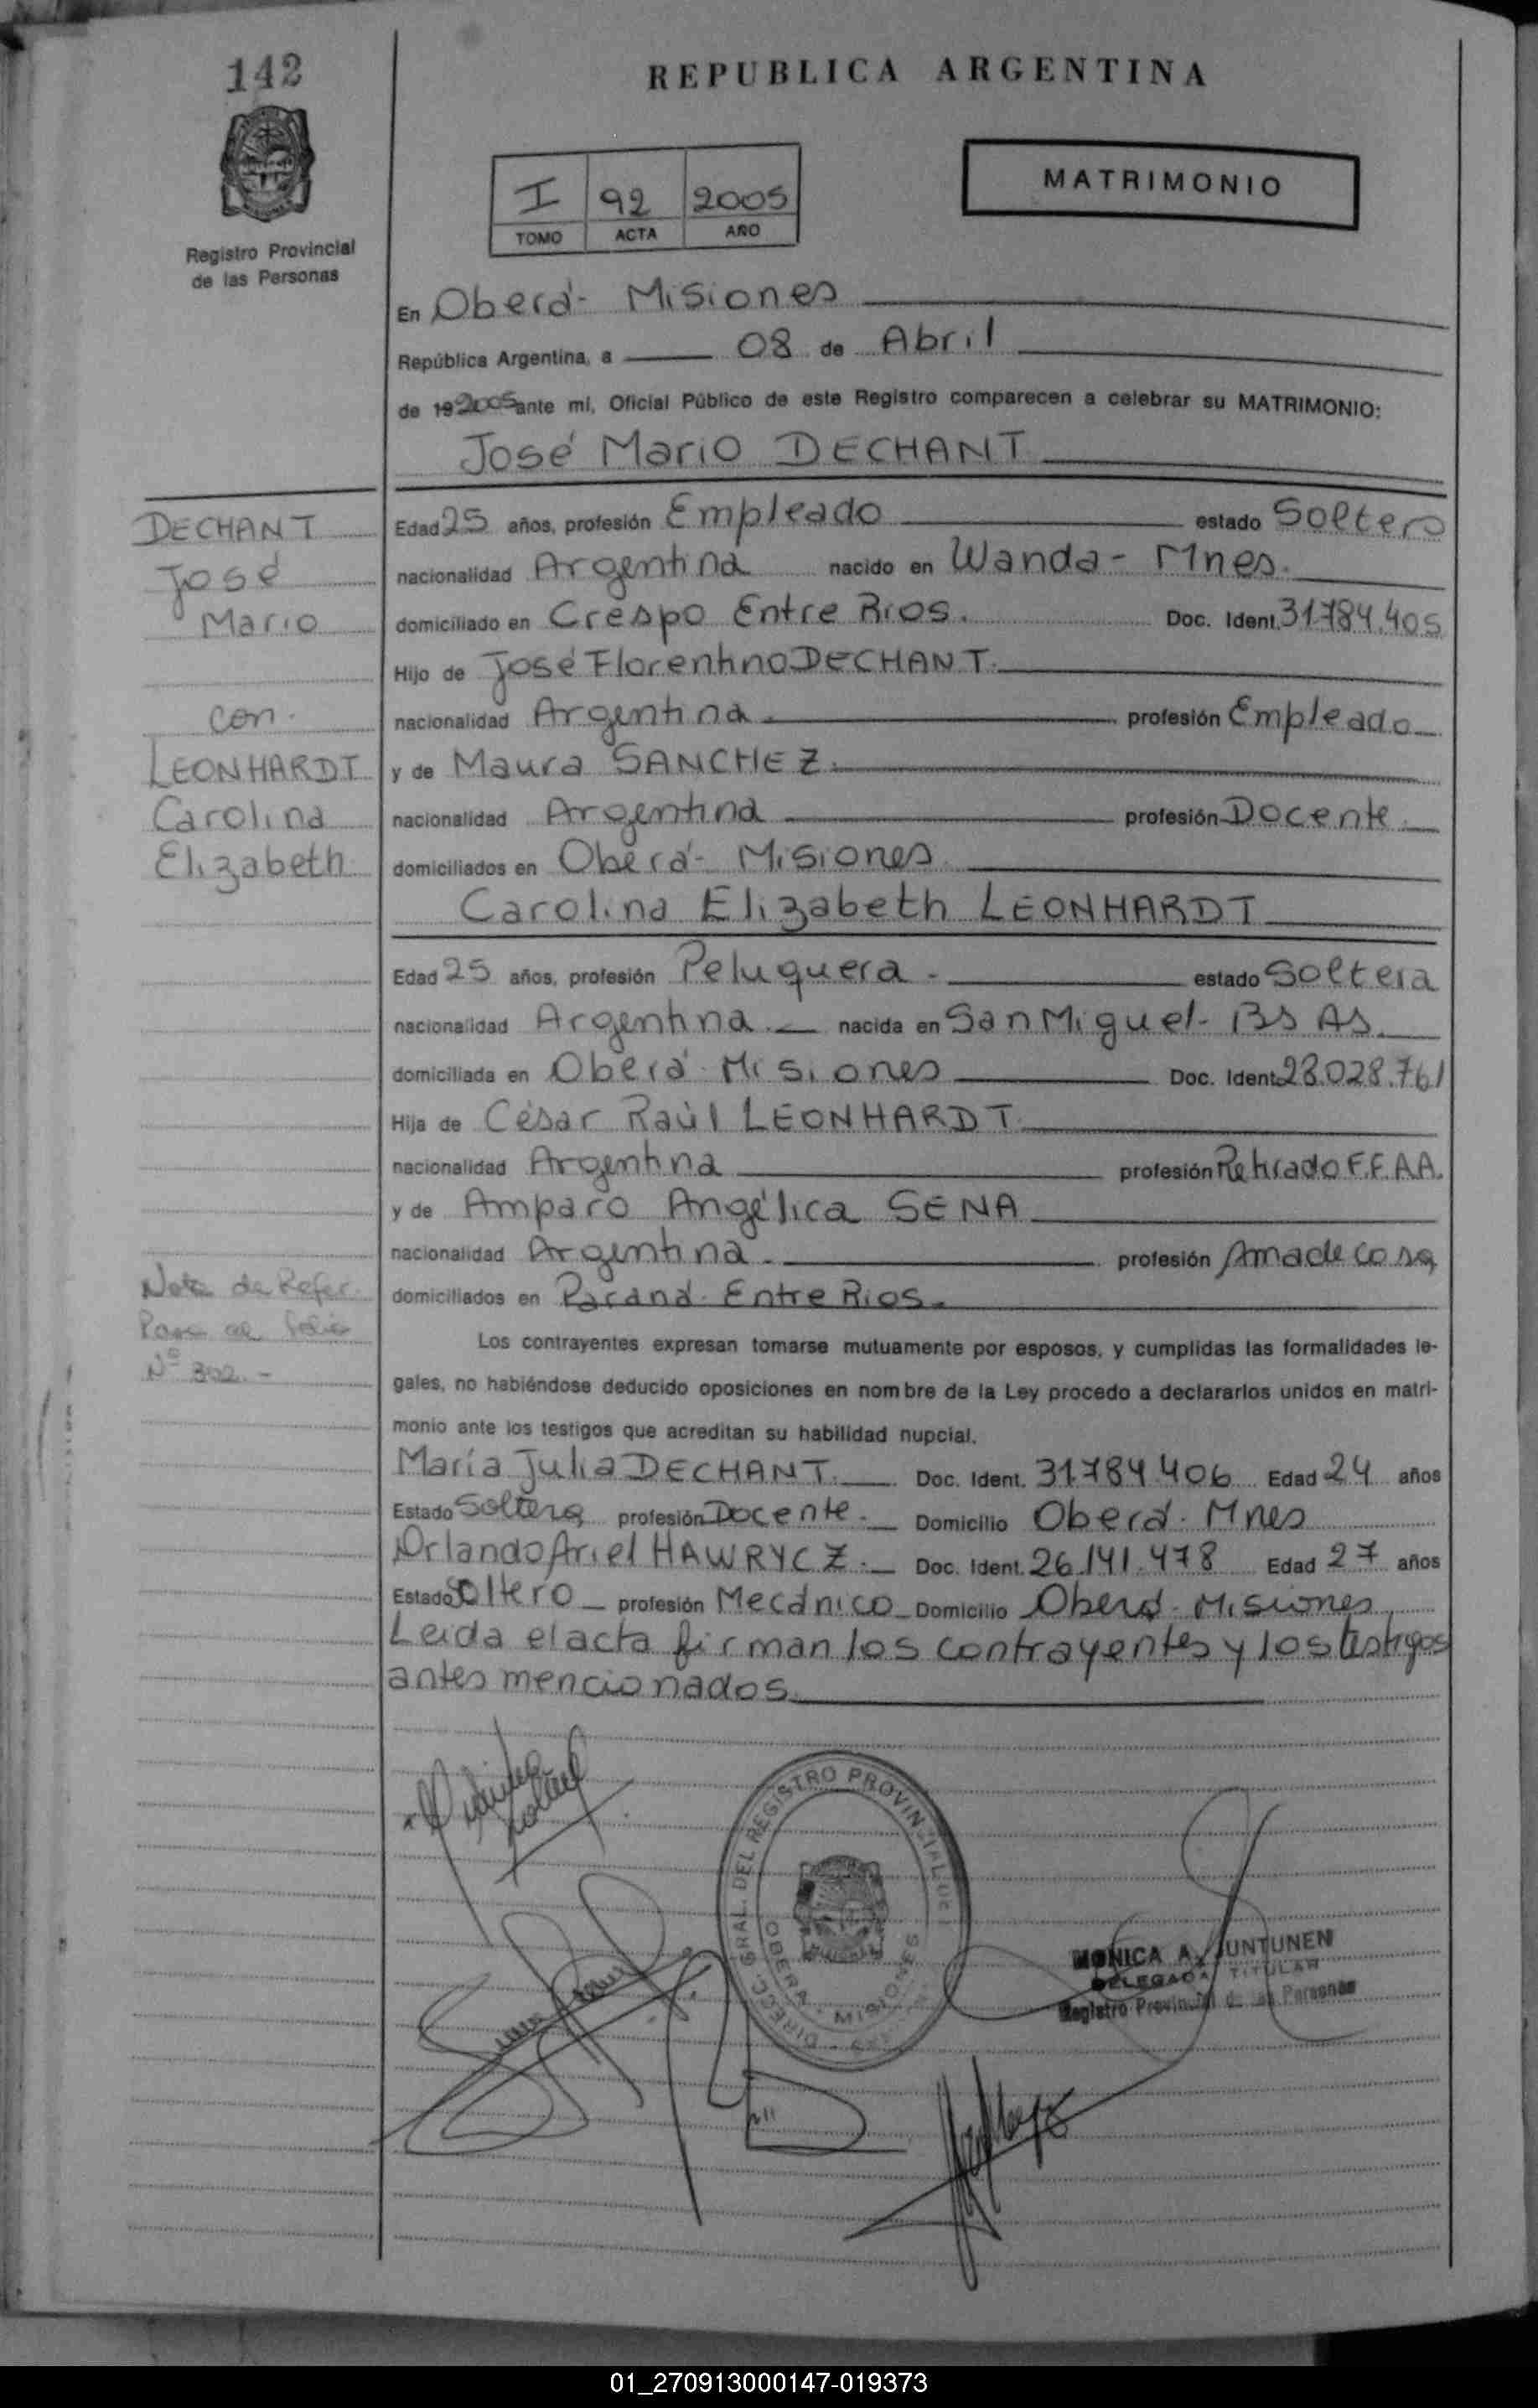 142
REPUBLICA ARGENTINA
I 92 2005
TOMO ACTA AÑO
MATRIMONIO
Registro Provincial
de las Personas
En Oberá - Misiones
República Argentina, a 08 de Abril
de 19 2005 ante mí, Oficial Público de este Registro comparecen a celebrar su MATRIMONIO:
José Mario DECHANT
DECHANT
José
Mario
con.
LEONHARDT
Carolina
Elizabeth
Edad 25 años, profesión Empleado estado Soltero
nacionalidad Argentina nacido en Wanda - Mnes.
domiciliado en Crespo Entre Rios. Doc. Ident. 31784.405
Hijo de José Florentino DECHANT.
nacionalidad Argentina. profesión Empleado
y de Maura SANCHEZ.
nacionalidad Argentina profesión Docente.
domiciliados en Oberá - Misiones
Carolina Elizabeth LEONHARDT
Edad 25 años, profesión Peluquera - estado Soltera
nacionalidad Argentina. nacida en San Miguel - BS AS.
domiciliada en Oberá - Misiones Doc. Ident. 28.028.761
Hija de César Raúl LEONHARDT.
nacionalidad Argentina profesión Retirado F.F.A.A.
y de Amparo Angélica SENA
nacionalidad Argentina. profesión Ama de casa
domiciliados en Paraná - Entre Rios.
Nota de Refer.
Pase al folio
Nº 302.-
Los contrayentes expresan tomarse mutuamente por esposos, y cumplidas las formalidades le-
gales, no habiéndose deducido oposiciones en nombre de la Ley procedo a declararlos unidos en matri-
monio ante los testigos que acreditan su habilidad nupcial.
María Julia DECHANT. Doc. Ident. 31.784.406 Edad 24 años
Estado Soltera profesión Docente. Domicilio Oberá - Mnes
Orlando Ariel HAWRYCZ. Doc. Ident. 26.141.478 Edad 27 años
Estado Soltero profesión Mecánico Domicilio Oberá - Misiones
Leída el acta firman los contrayentes y los testigos
antes mencionados.
DIRECC. GRAL. DEL REGISTRO PROVINCIAL DE
OBERA - MISIONES
MONICA A. JUNTUNEN
DELEGADA TITULAR
Registro Provincial de las Personas
01_270913000147-019373